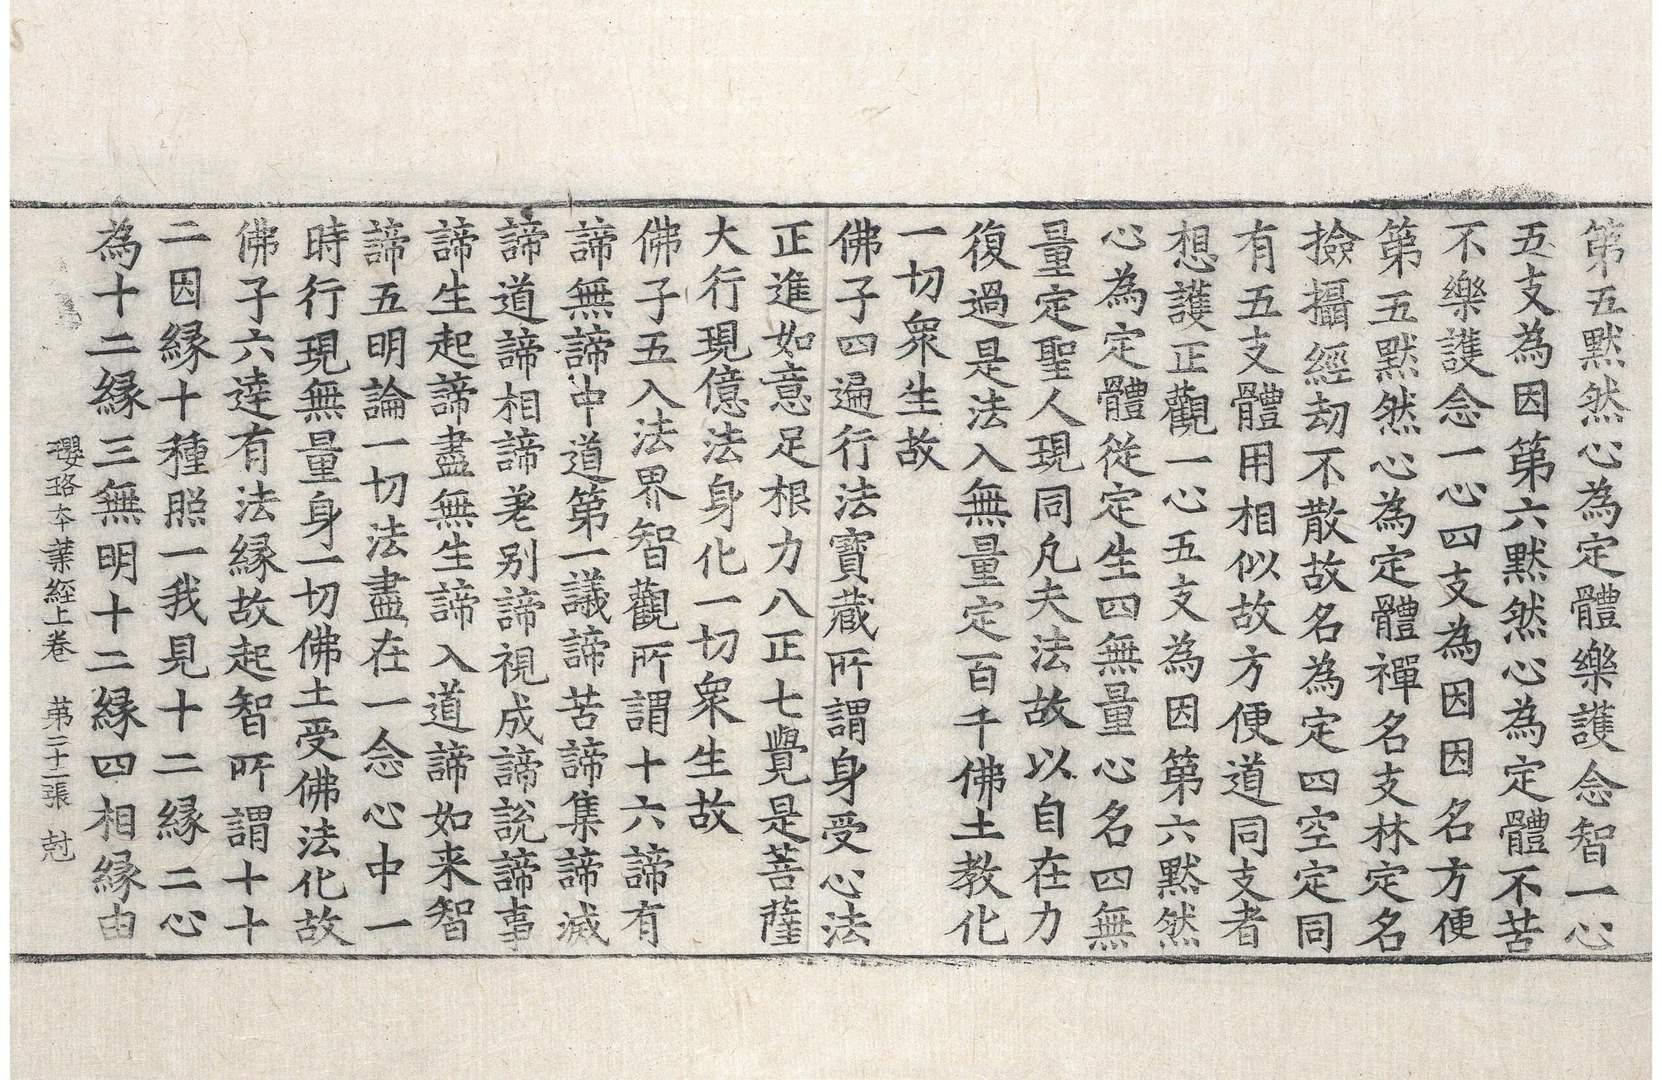 第五黙然心為定體樂護念智一心
五支為因第六黙然心為定體不苦
不樂護念一心四支為因因名方便
第五黙然心為定體禪名支林定名
撿攝經劫不散故名為定四空定同
有五支體用相似故方便道同支者
想護正觀一心五支為因第六黙然
心為定體從定生四無量心名四無
量定聖人現同凡夫法故以自在力
復過是法入無量定百千佛土教化
一切衆生故
佛子四遍行法寶蔵所謂身受心法
正進如意足根力八正七覺是菩薩
大行現億法身化一切衆生故
佛子五入法界智觀所謂十六諦有
諦無諦中道第一議諦苦諦集諦滅
諦道諦相諦差别諦視成諦說諦事
諦生起諦盡無生諦入道諦如来智
諦五明論一切法盡在一念心中一
時行現無量身一切佛土受佛法化故
佛子六達有法縁故起智所謂十十
二因縁十種照一我見十二縁二心
為十二縁三無明十二縁四相縁由
瓔珞本業経上卷 第二十二張 尅